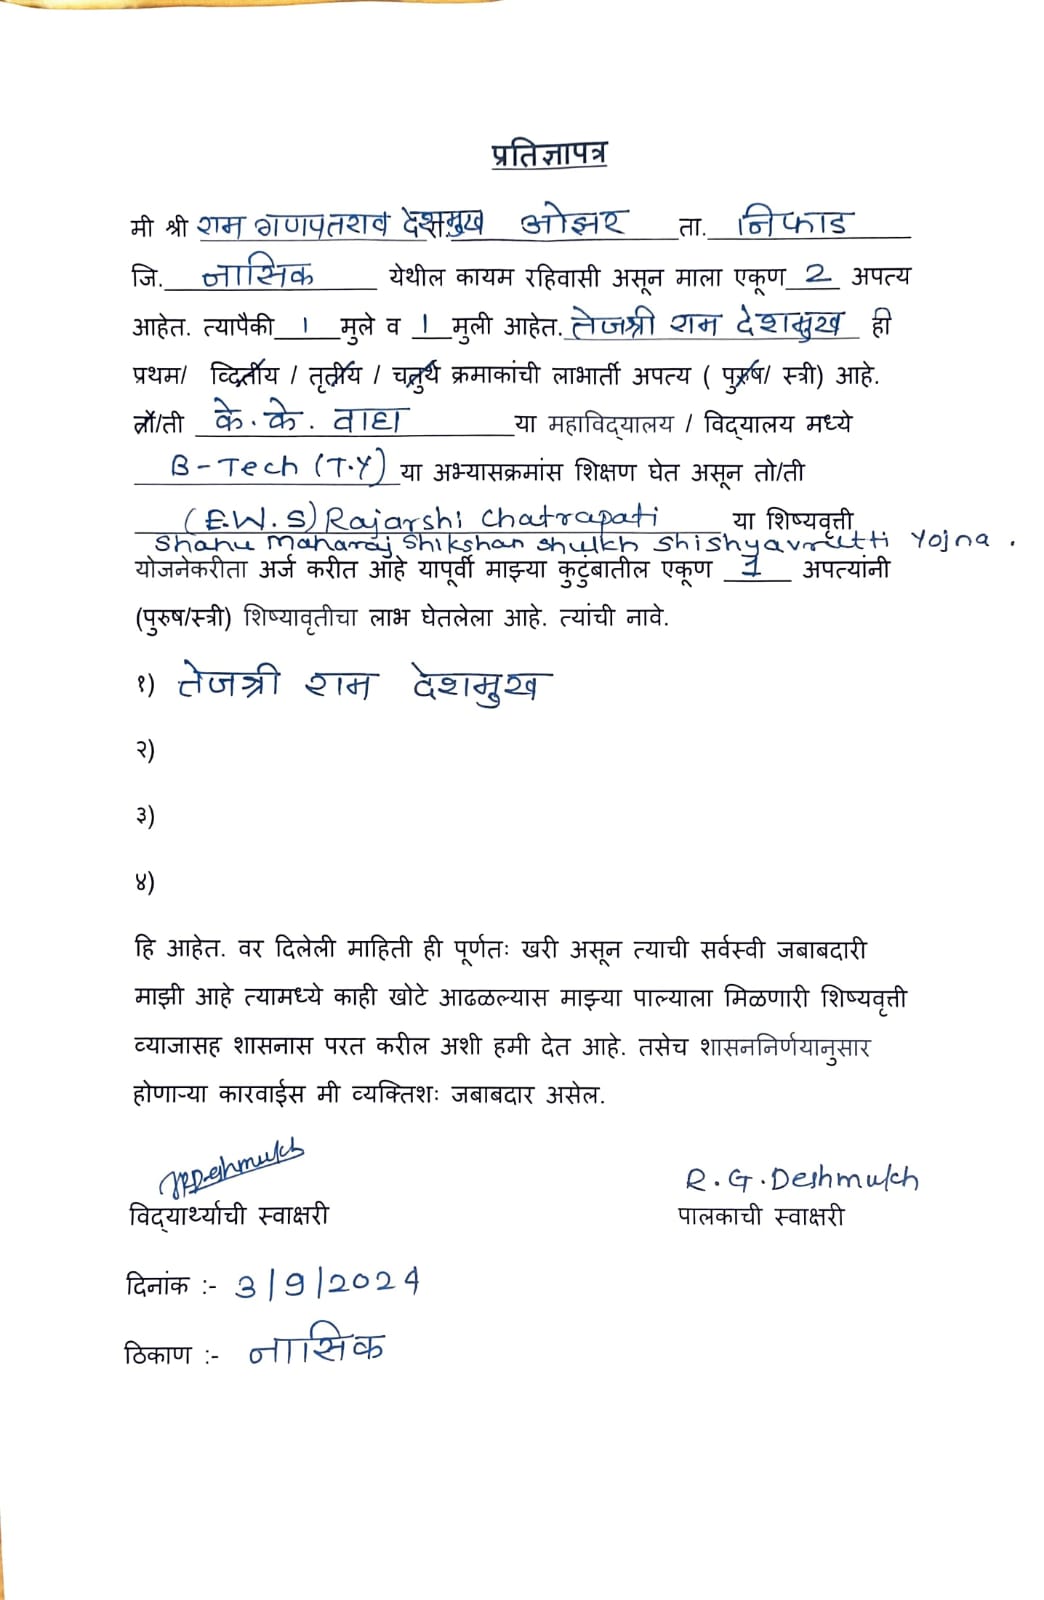 प्रतिज्ञापत्र
मी श्री राम गणपतराव देशमुख ओझर ता. निफाड
जि. नासिक येथील कायम रहिवासी असून माला एकूण 2 अपत्य
आहेत. त्यापैकी 1 मुले व 1 मुली आहेत. तेजश्री राम देशमुख ही
प्रथम/ व्दितीय / तृतीय / चतुर्थ क्रमाकांची लाभार्ती अपत्य ( पुरुष/ स्त्री) आहे.
तो/ती के. के. वाघ या महाविद्यालय / विद्यालय मध्ये
B-Tech (T.Y) या अभ्यासक्रमांस शिक्षण घेत असून तो/ती
(E.W.S) Rajarshi Chatrapati या शिष्यवृत्ती
Shahu Maharaj Shikshan Shulkh Shishyavrutti Yojna .
योजनेकरीता अर्ज करीत आहे यापूर्वी माझ्या कुटुंबातील एकूण 1 अपत्यांनी
(पुरुष/स्त्री) शिष्यावृतीचा लाभ घेतलेला आहे. त्यांची नावे.
१) तेजश्री राम देशमुख
२)
३)
४)
हि आहेत. वर दिलेली माहिती ही पूर्णतः खरी असून त्याची सर्वस्वी जबाबदारी
माझी आहे त्यामध्ये काही खोटे आढळल्यास माझ्या पाल्याला मिळणारी शिष्यवृत्ती
व्याजासह शासनास परत करील अशी हमी देत आहे. तसेच शासननिर्णयानुसार
होणाऱ्या कारवाईस मी व्यक्तिशः जबाबदार असेल.
TRDeshmukh R. G. Deshmukh
विद्यार्थ्याची स्वाक्षरी पालकाची स्वाक्षरी
दिनांक :- 3/9/2024
ठिकाण :- नासिक